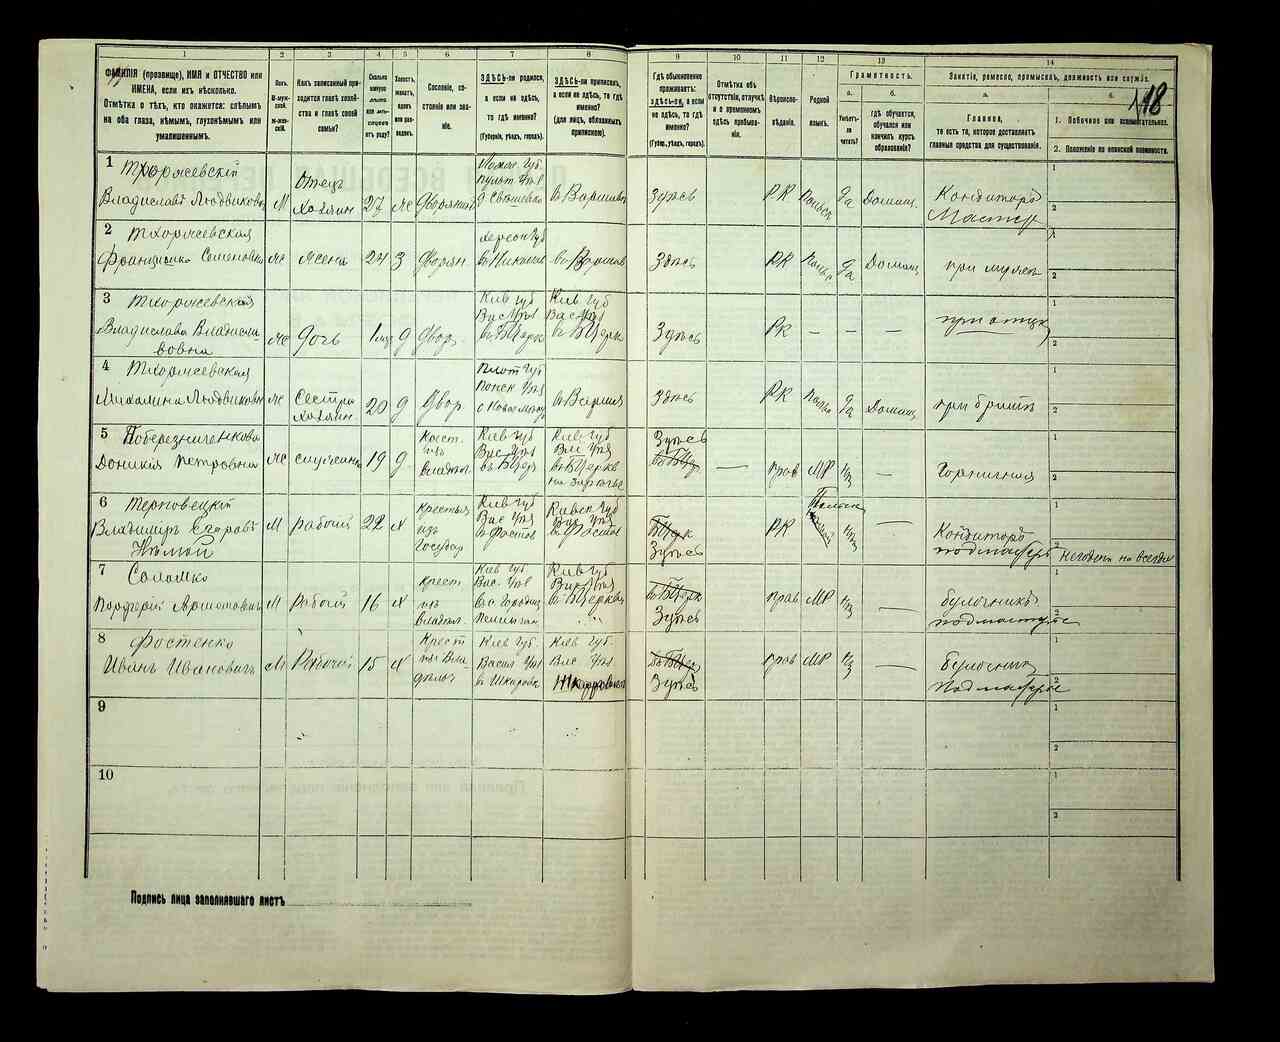 1 2 3 4 5 6 7 8 9 10 11 12 13 14
ФАМИЛІЯ (прозвище), ИМЯ и ОТЧЕСТВО или
ИМЕНА, если ихъ нѣсколько.
Отмѣтка о тѣхъ, кто окажется: слѣпымъ
на оба глаза, нѣмымъ, глухонѣмымъ или
умалишеннымъ.
Полъ.
М-муж-
ской.
Ж-жен-
скій.
Какъ записанный при-
ходится главѣ хозяй-
ства и главѣ своей
семьи?
Сколько
минуло
лѣтъ
или мѣся-
цевъ
отъ роду?
Холостъ,
женатъ,
вдовъ
или раз-
веденъ.
Сословіе, со-
стояніе или зва-
ніе.
ЗДѢСЬ-ли родился,
а если не здѣсь,
то гдѣ именно?
(Губернія, уѣздъ, городъ).
ЗДѢСЬ-ли приписанъ,
а если не здѣсь, то гдѣ
именно?
(для лицъ, обязанныхъ
припискою).
Гдѣ обыкновенно
проживаетъ:
здѣсь-ли, а если
не здѣсь, то гдѣ
именно?
(Губер., уѣздъ, городъ).
Отмѣтка объ
отсутствіи, отлучкѣ
и о временномъ
здѣсь пребыва-
ніи.
Вѣроиспо-
вѣданіе.
Родной
языкъ.
Грамотность.
а.
Умѣетъ-
ли
читать?
б.
гдѣ обучается,
обучался или
кончилъ курсъ
образованія?
Занятіе, ремесло, промыселъ, должность или служба.
а.
Главное,
то есть то, которое доставляетъ
главныя средства для существованія.
б.
18
1. Побочное или вспомогательное.
2. Положеніе по воинской повинности.
1 Тхоржевскій
Владиславъ Людвиковъ М Отецъ Хозяин 27 же Дворянин въ Варшавѣ Здѣсь РК Польск Да Домаш. Кондиторъ Мастер
2 Тхоржевская
Францишка Семеновна же жена 24 З Дворян Херсон Губ въ Николае въ Варшав Здѣсь РК Польс Да Домаш
3 Тхоржевская
Владислава Владисла-
вовна же Дочь Д Двор. Кіев Губ Вас Уѣз въ БЦерк Кіев Губ Вас Уѣз въ БЦерк Здѣсь РК — — — при отцѣ
4 Тхоржевская
Михалина Людвиковн же Сестра Хозяин 20 Д Двор въ Варшав Здѣсь РК Польс Да Домаш при братѣ
5 Побережниченкова
Доникія Петровна же служанка 19 д. Крест. изъ владѣл. Кіев Губ Вас Уѣз въ БЦерк Кіев. Губ. Вас Уѣз въ БЦеркв Здѣсь въ БЦер — прав МР Нѣ — Горничная
6 Терновецкій
Владиміръ Егоровъ
Нѣмой М рабочій 22 Х Крестья изъ Государ Кіев Губ Вас Уѣз в Фастов Кіевск Губ Вас Уѣз в Фастов БЦерк Здѣсь РК Польск Нѣ — Кондиторъ подмастерь Негоденъ на всегда
7 Соломко
Порфирій М Рабочій 16 Х Крест изъ владѣл Кіев Губ. Вас. Уѣз Кіев Губ Вас Уѣз въ БЦеркви въ БЦерк Здѣсь прав МР Нѣ — булочникъ подмастерье
8 Фостенко
Иванъ Ивановичъ М Рабочій 15 Х Крест изъ Вла- дѣльч Кіев Губ. Васил Уѣз в Шкаровк Кіев Губ. Вас Уѣз Шкаровка въ БЦер Здѣсь прав МР Нѣ — Булочник Подмастерье
9
10
Подпись лица заполнявшаго листъ